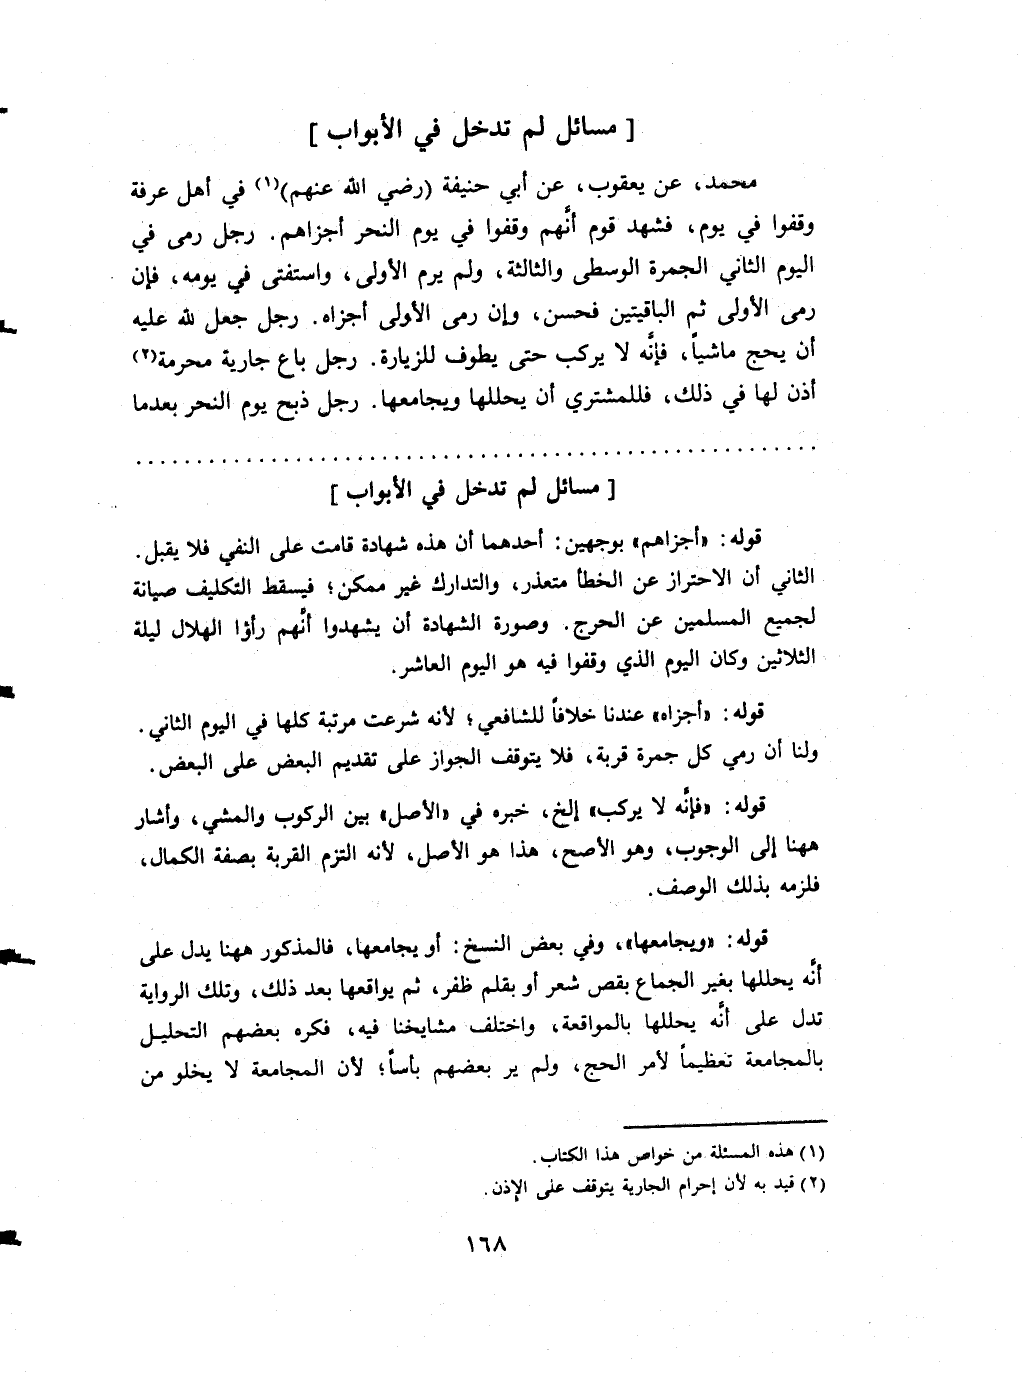 [ مسائل لم تدخل في الأبواب ]
محمد، عن يعقوب، عن أبي حنيفة (رضي الله عنهم)(١) في أهل عرفة
وقفوا في يوم، فشهد قوم أنَّهم وقفوا في يوم النحر أجزاهم. رجل رمى في
اليوم الثاني الجمرة الوسطى والثالثة، ولم يرم الأولى، واستفتى في يومه، فإن
رمى الأولى ثم الباقيتين فحسن، وإن رمى الأولى أجزاه. رجل جعل لله عليه
أن يحج ماشياً، فإنَّه لا يركب حتى يطوف للزيارة. رجل باع جارية محرمة(٢)
أذن لها في ذلك، فللمشتري أن يحللها ويجامعها. رجل ذبح يوم النحر بعدما
[ مسائل لم تدخل في الأبواب ]
قوله: «أجزاهم» بوجهين: أحدهما أن هذه شهادة قامت على النفي فلا يقبل.
الثاني أن الاحتراز عن الخطأ متعذر، والتدارك غير ممكن؛ فيسقط التكليف صيانة
لجميع المسلمين عن الحرج. وصورة الشهادة أن يشهدوا أنَّهم رأؤا الهلال ليلة
الثلاثين وكان اليوم الذي وقفوا فيه هو اليوم العاشر.
قوله: «أجزاه» عندنا خلافاً للشافعي؛ لأنه شرعت مرتبة كلها في اليوم الثاني.
ولنا أن رمي كل جمرة قربة، فلا يتوقف الجواز على تقديم البعض على البعض.
قوله: «فإنَّه لا يركب» إلخ، خبره في «الأصل» بين الركوب والمشي، وأشار
ههنا إلى الوجوب، وهو الأصح، هذا هو الأصل، لأنه التزم القربة بصفة الكمال،
فلزمه بذلك الوصف.
قوله: «ويجامعها»، وفي بعض النسخ: أو يجامعها، فالمذكور ههنا يدل على
أنَّه يحللها بغير الجماع بقص شعر أو بقلم ظفر، ثم يواقعها بعد ذلك، وتلك الرواية
تدل على أنَّه يحللها بالمواقعة، واختلف مشايخنا فيه، فكره بعضهم التحليل
بالمجامعة تعظيماً لأمر الحج، ولم ير بعضهم بأساً؛ لأن المجامعة لا يخلو من
(١) هذه المسئلة من خواص هذا الكتاب.
(٢) قيد به لأن إحرام الجارية يتوقف على الإذن.
١٦٨